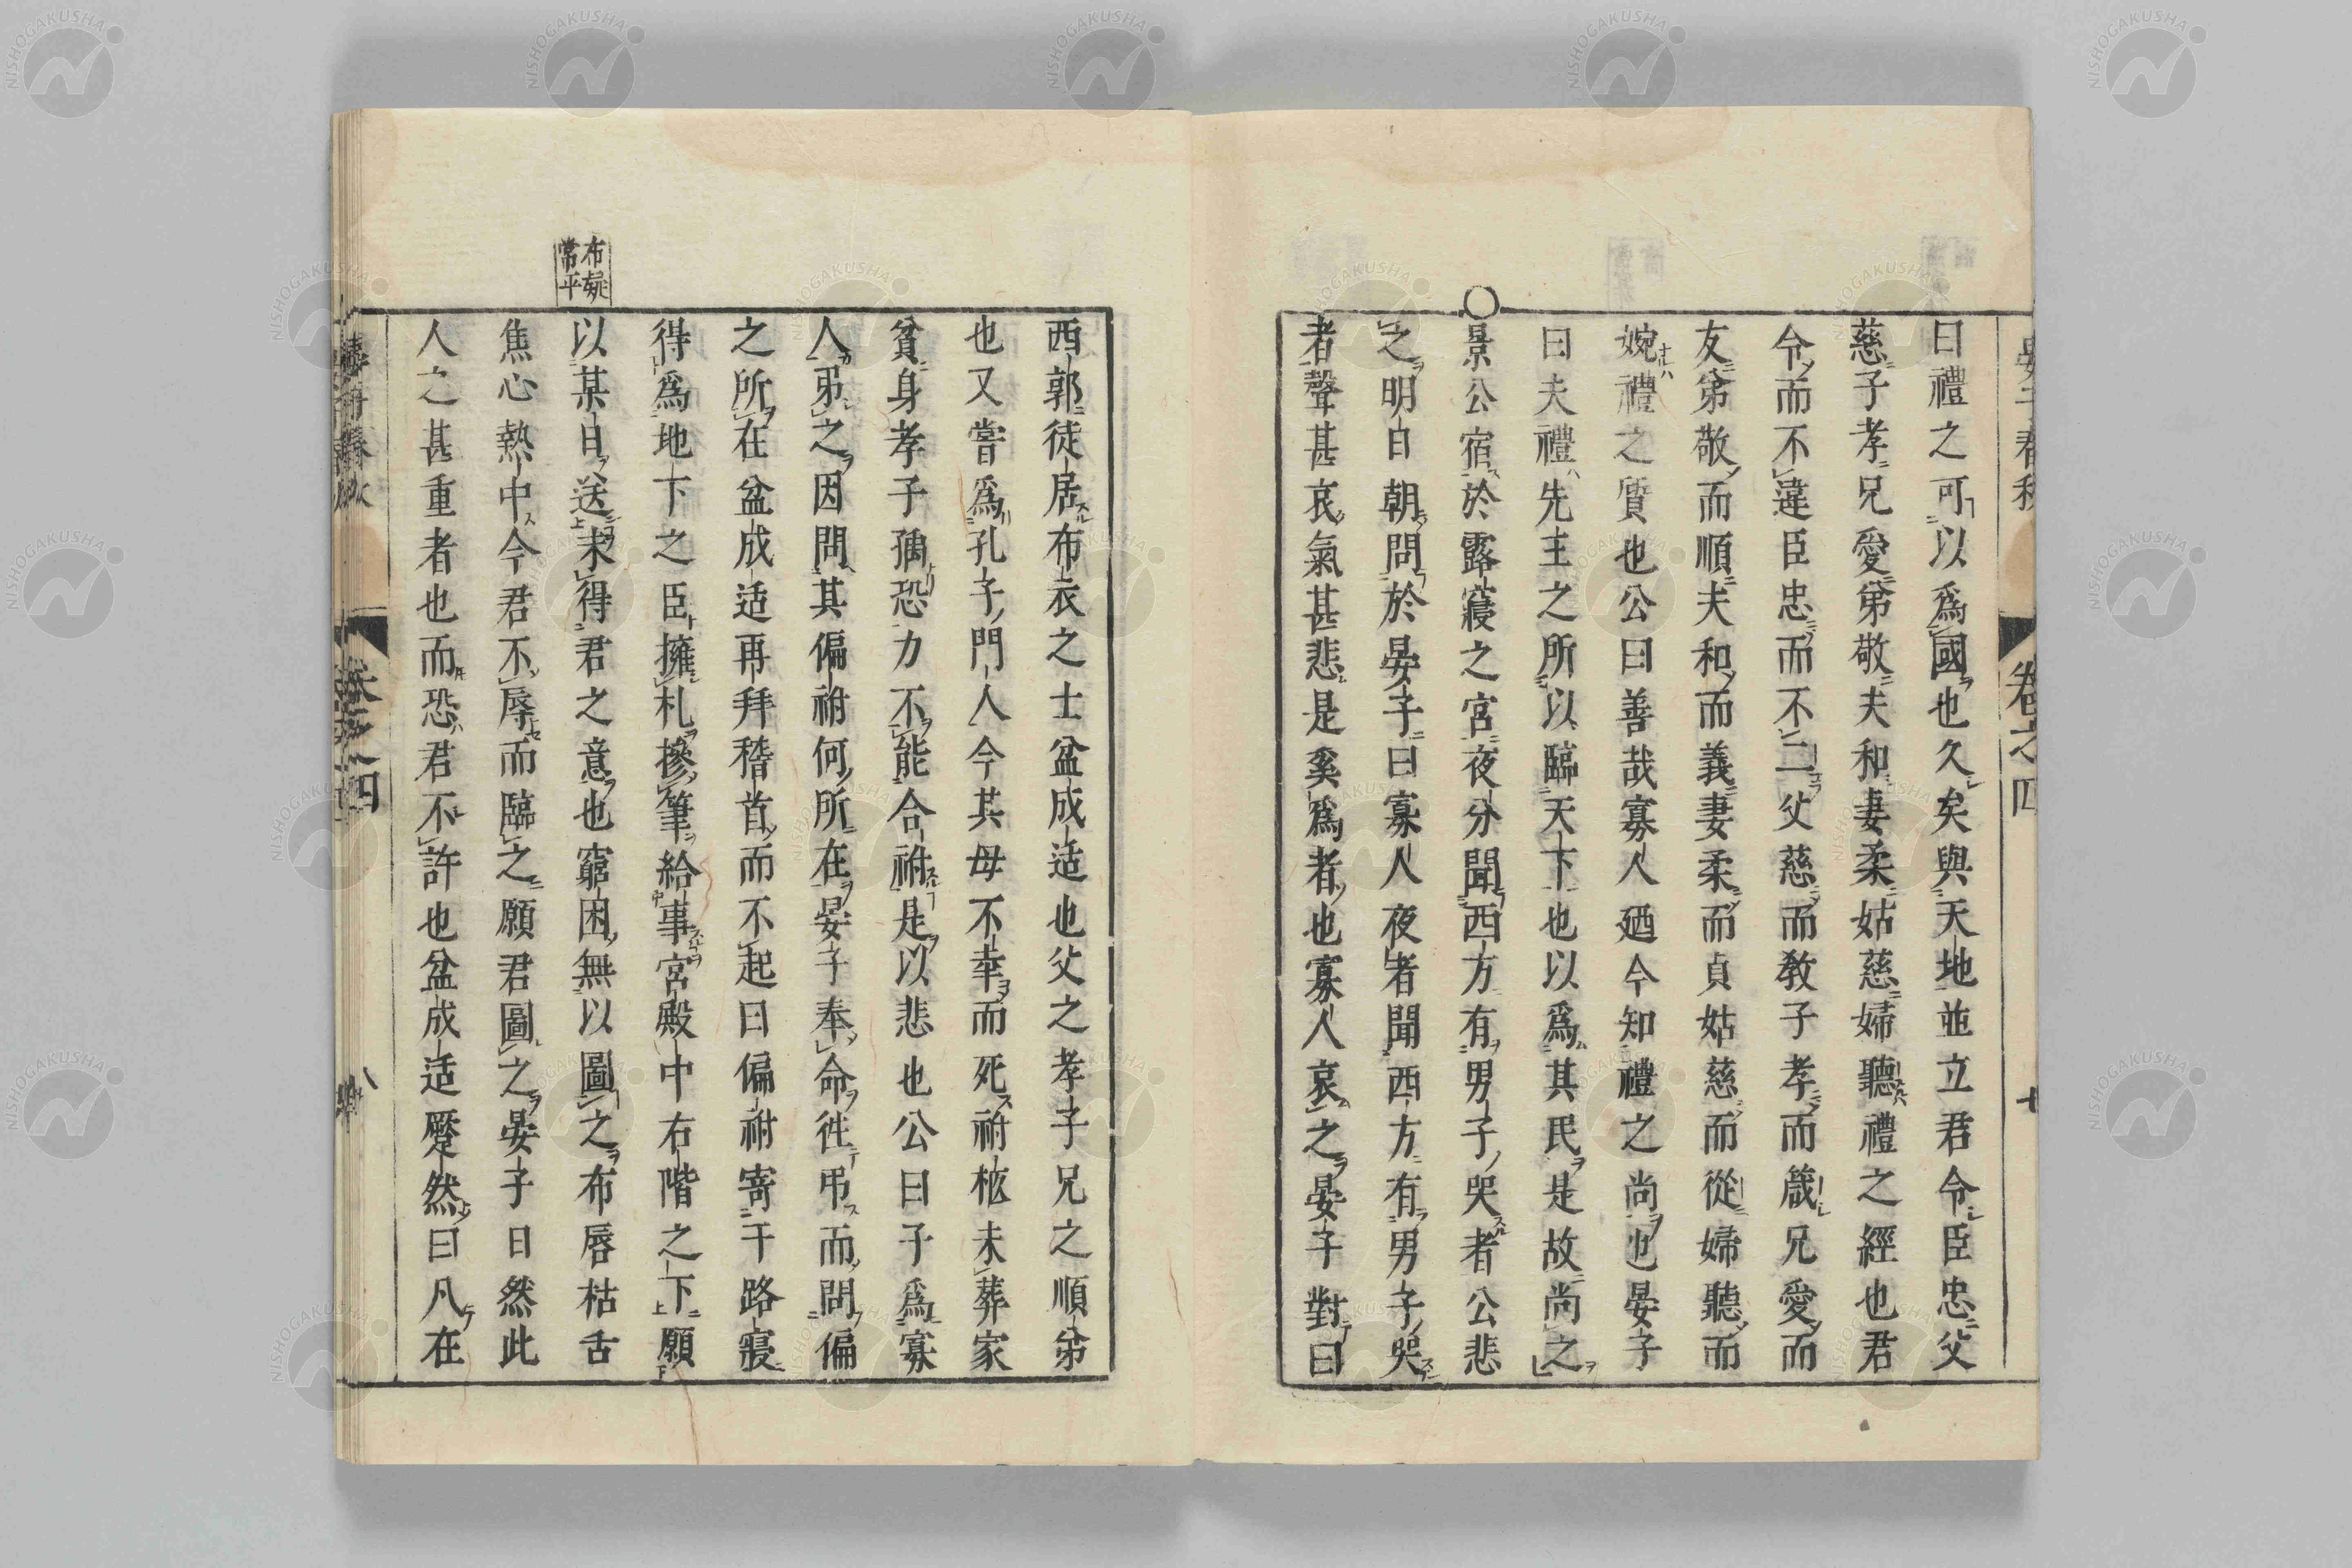 晏子春秋
卷之四
七
曰禮之可以爲國也久矣與天地並立君令臣忠父
慈子孝兄愛弟敬夫和妻柔姑慈婦聽禮之經也君
令而不違臣忠而不二父慈而教子孝而箴兄愛而
友弟敬而順夫和而義妻柔而貞姑慈而從婦聽而
婉禮之質也公曰善哉寡人廼今知禮之尚也晏子
曰夫禮先王之所以臨天下也以爲其民是故尚之
○景公宿於露寢之宮夜分聞西方有男子哭者公悲
之明日朝問於晏子曰寡人夜者聞西方有男子哭
者聲甚哀氣甚悲是奚爲者也寡人哀之晏子對曰
西郭徒居布衣之士盆成适也父之孝子兄之順弟
也又嘗爲孔子門人今其母不幸而死祔柩未葬家
貧身孝子孺恐力不能合祔是以悲也公曰子爲寡
人弔之因問其偏祔何所在晏子奉命往弔而問偏
之所在盆成适再拜稽首而不起曰偏祔寄于路寢
得爲地下之臣擁札摻筆給事宮殿中右階之下願
布疑
常平
以某日送未得君之意也窮困無以圖之布唇枯舌
焦心熱中今君不辱而臨之願君圖之晏子曰然此
人之甚重者也而恐君不許也盆成适蹷然曰凡在
卷之四
八